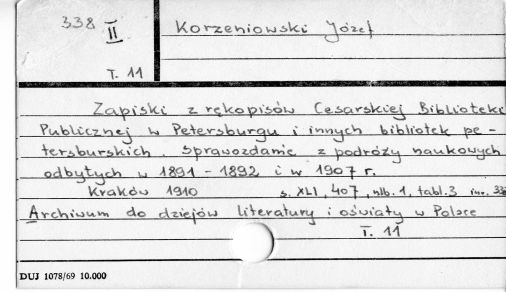 338
II
T. 11
Korzeniowski Józef
Zapiski z rękopisów Cesarskiej Biblioteki
Publicznej w Petersburgu i innych bibliotek pe-
tersburskich. Sprawozdanie z podróży naukowych
odbytych w 1891 - 1892 i w 1907 r.
Kraków 1910 s. XLI, 407, nlb. 1, tabl. 3 inw.
Archiwum do dziejów literatury i oświaty w Polsce
T. 11
DUJ 1078/69 10.000